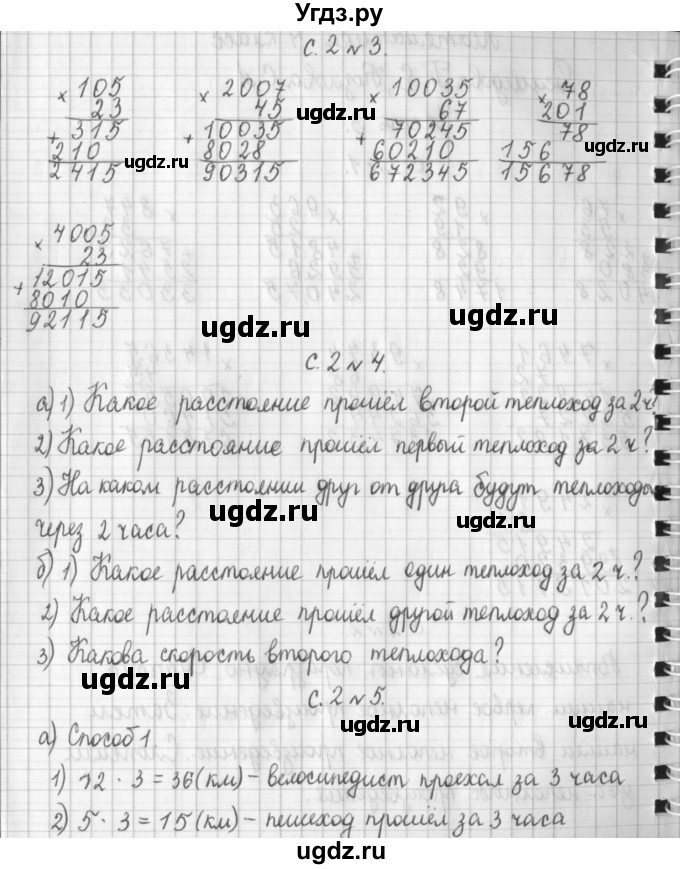 Угдз.ру
с. 2 № 3.
× 105
23
+ 315
210
2415
× 2007
45
+ 10035
8028
90315
× 10035
67
+ 70245
60210
672345
× 78
201
78
156
15678
ugdz.ru
ugdz.ru
ugdz.ru
ugdz.ru
× 4005
23
+ 12015
8010
92115
ugdz.ru
ugdz.ru
с. 2 № 4.
а) 1) Какое расстояние прошёл второй теплоход за 2 ч?
2) Какое расстояние прошёл первый теплоход за 2 ч?
3) На каком расстоянии друг от друга будут теплоходы
ugdz.ru
ugdz.ru
через 2 часа?
б) 1) Какое расстояние прошёл один теплоход за 2 ч.?
2) Какое расстояние прошёл другой теплоход за 2 ч.?
3) Какова скорость второго теплохода?
ugdz.ru
ugdz.ru
с. 2 № 5.
а) Способ 1.
1) 12 · 3 = 36 (км) – велосипедист проехал за 3 часа
2) 5 · 3 = 15 (км) – пешеход прошёл за 3 часа
ugdz.ru
ugdz.ru